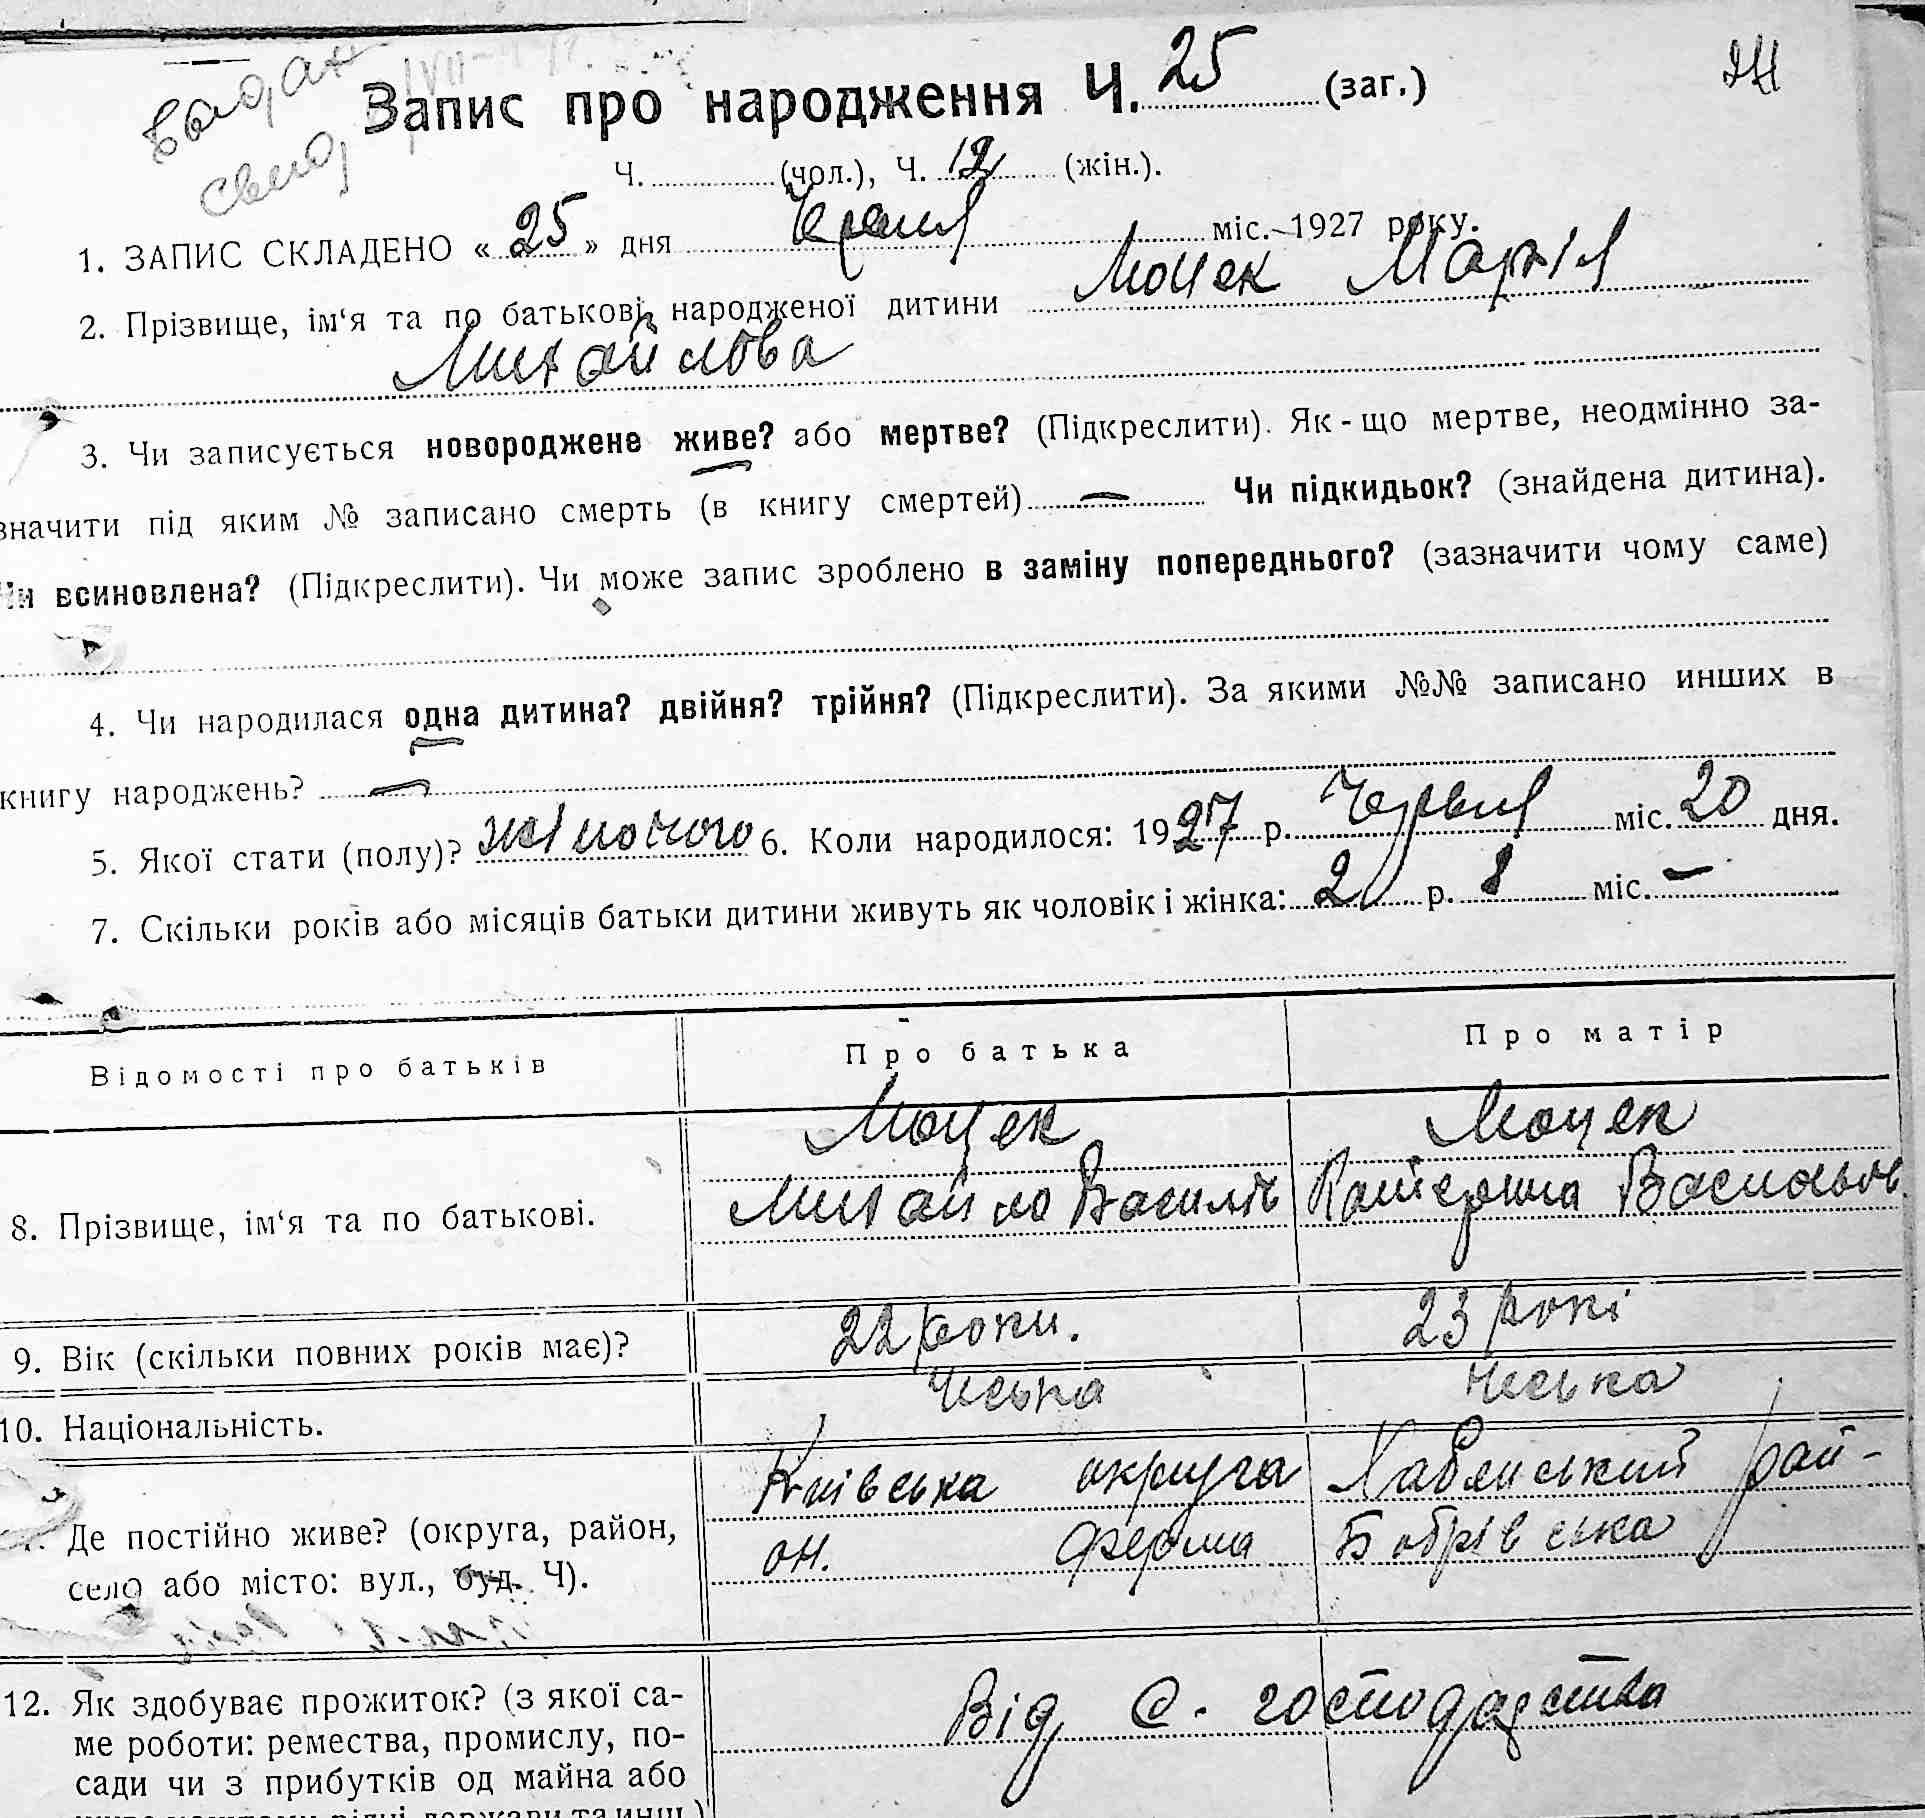 видан
Запис про народження Ч. 25 (заг.)
24
Ч. (чол.), Ч. 12 (жін.).
1. ЗАПИС СКЛАДЕНО « 25 » дня Червня міс. 1927 року.
2. Прізвище, ім‘я та по батькові народженої дитини Моцек Марія
Михайлова
3. Чи записується новороджене живе? або мертве? (Підкреслити). Як-що мертве, неодмінно за-
значити під яким № записано смерть (в книгу смертей) — Чи підкидьок? (знайдена дитина).
Чи всиновлена? (Підкреслити). Чи може запис зроблено в заміну попереднього? (зазначити чому саме)
4. Чи народилася одна дитина? двійня? трійня? (Підкреслити). За якими №№ записано инших в
книгу народжень? —
5. Якої стати (полу)? жіночого 6. Коли народилося: 1927 р. Червня міс. 20 дня.
7. Скільки років або місяців батьки дитини живуть як чоловік і жінка: 2 р. 8 міс. —
Відомості про батьків Про батька Про матір
Моцек Моцек
8. Прізвище, ім‘я та по батькові. Михайло Василів Катерина Васильов.
9. Вік (скільки повних років має)? 22 роки. 23 рокі
10. Національність. Чеська Чеська
Київська округа Хабенський рай-
Де постійно живе? (округа, район, он. Ферма Бобрівська
село або місто: вул., буд. Ч).
12. Як здобуває прожиток? (з якої са- Від С. господарства
ме роботи: ремества, промислу, по-
сади чи з прибутків од майна або
держави та инш.)